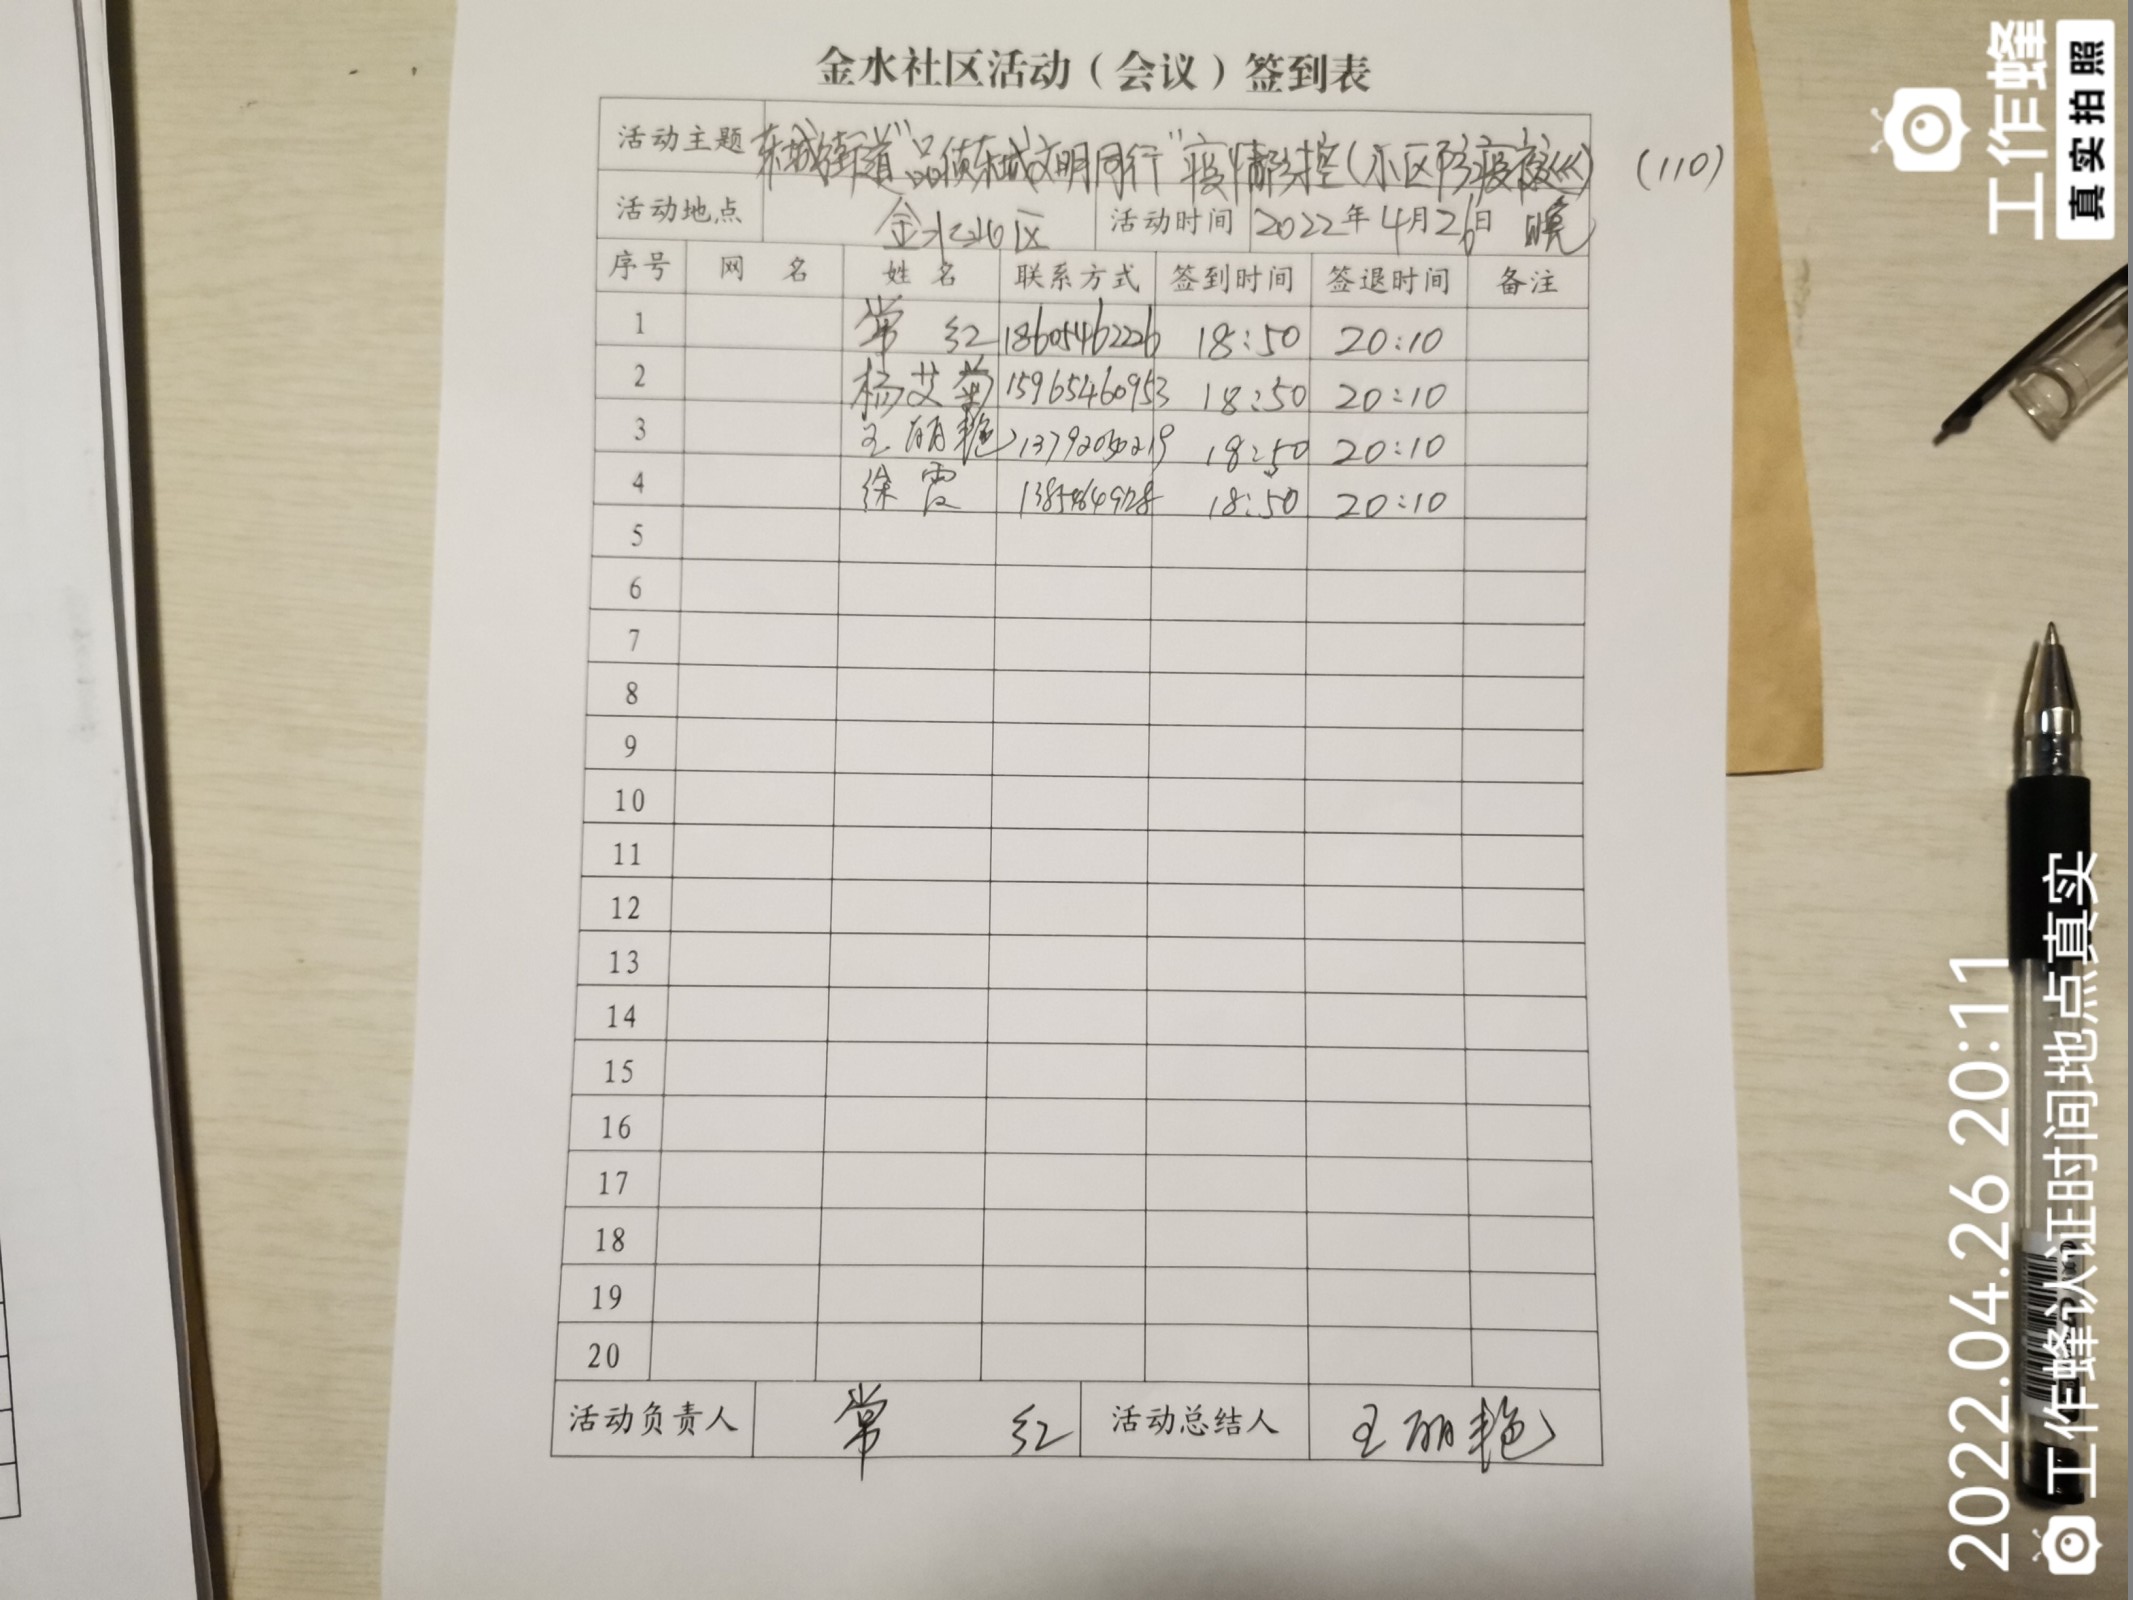 金水社区活动（会议）签到表
活动主题 东城街道“品质东城文明同行”疫情防控（小区防疫夜巡） （110）
活动地点 金水社区 活动时间 2022年4月26日 晚
序号 网 名 姓 名 联系方式 签到时间 签退时间 备注
1 常 红 18605462226 18:50 20:10
2 杨艾菊 15965460953 18:50 20:10
3 王丽艳 18:50 20:10
4 徐霞 18:50 20:10
5
6
7
8
9
10
11
12
13
14
15
16
17
18
19
20
活动负责人 常 红 活动总结人 王丽艳
工作蜂
真实拍照
2022.04.26 20:11
工作蜂认证时间地点真实